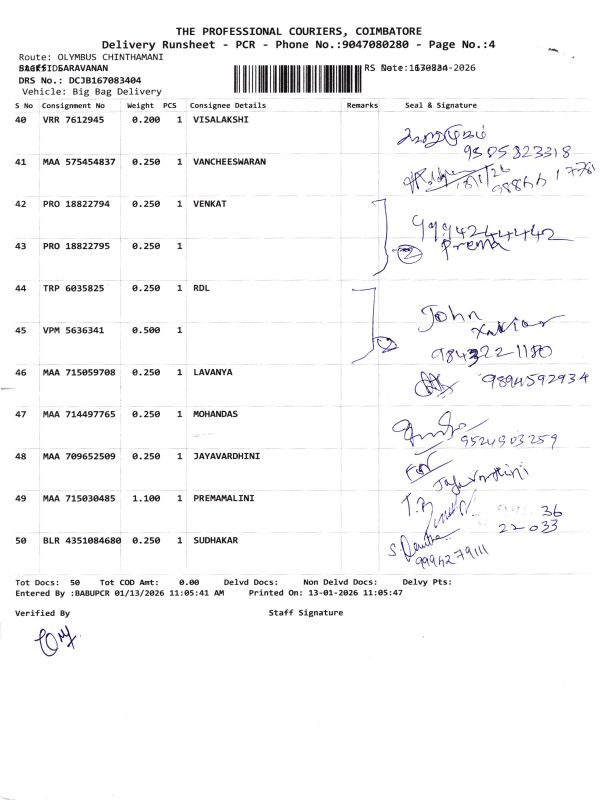 THE PROFESSIONAL COURIERS, COIMBATORE
Delivery Runsheet - PCR - Phone No.:9047080280 - Page No.:4
Route: OLYMBUS CHINTHAMANI
SARAVANAN
DRS No.: DCJB167083404
Vehicle: Big Bag Delivery
S No Consignment No Weight PCS Consignee Details Remarks Seal & Signature
40 VRR 7612945 0.200 1 VISALAKSHI
9505823318
41 MAA 575454837 0.250 1 VANCHEESWARAN
42 PRO 18822794 0.250 1 VENKAT
9994244442
43 PRO 18822795 0.250 1 2 Prema
44 TRP 6035825 0.250 1 RDL
John
Xavier
45 VPM 5636341 0.500 1 2
9843221180
46 MAA 715059708 0.250 1 LAVANYA 9894592934
47 MAA 714497765 0.250 1 MOHANDAS
9524903259
48 MAA 709652509 0.250 1 JAYAVARDHINI
Jayavardhini
49 MAA 715030485 1.100 1 PREMAMALINI
36
22033
50 BLR 4351084680 0.250 1 SUDHAKAR
9994279111
Tot Docs: 50 Tot COD Amt: 0.00 Delvd Docs: Non Delvd Docs: Delvy Pts:
Entered By :BABUPCR 01/13/2026 11:05:41 AM Printed On: 13-01-2026 11:05:47
Verified By Staff Signature